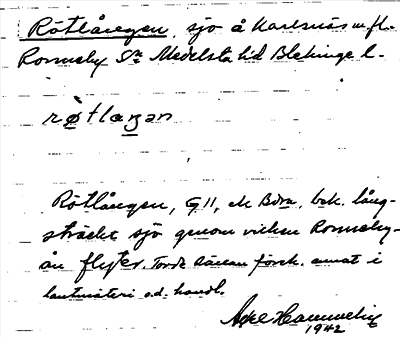 Rötlången, sjö å Karlsnäs m. fl.
Ronneby Sn Medelsta hd Blekinge l.
røtlaŋən
Rötlången, G 11, ek Bdra, bet. lång-
sträckt sjö genom vilken Ronneby-
ån flyter. Torde sällan förek. annat i
lantmäteri o.d. handl.
1942